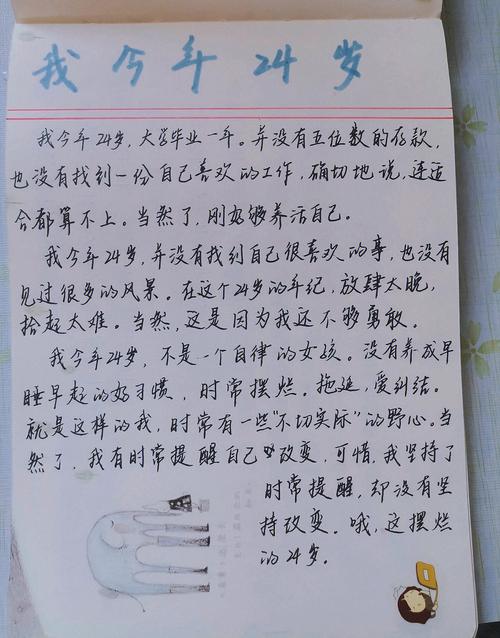 我今年24岁
我今年24岁，大学毕业一年。并没有五位数的存款，
也没有找到一份自己喜欢的工作，确切地说，连适
合都算不上。当然了，刚好够养活自己。
我今年24岁，并没有找到自己很喜欢的事，也没有
见过很多的风景。在这个24岁的年纪，放肆太晚，
拾起太难。当然，这是因为我还不够勇敢。
我今年24岁，不是一个自律的女孩。没有养成早
睡早起的好习惯，时常摆烂。拖延，爱纠结。
就是这样的我，时常有一些“不切实际”的野心。当
然了，我有时常提醒自己改变，可惜，我坚持了
时常提醒，却没有坚
持改变。哦，这摆烂
的24岁。